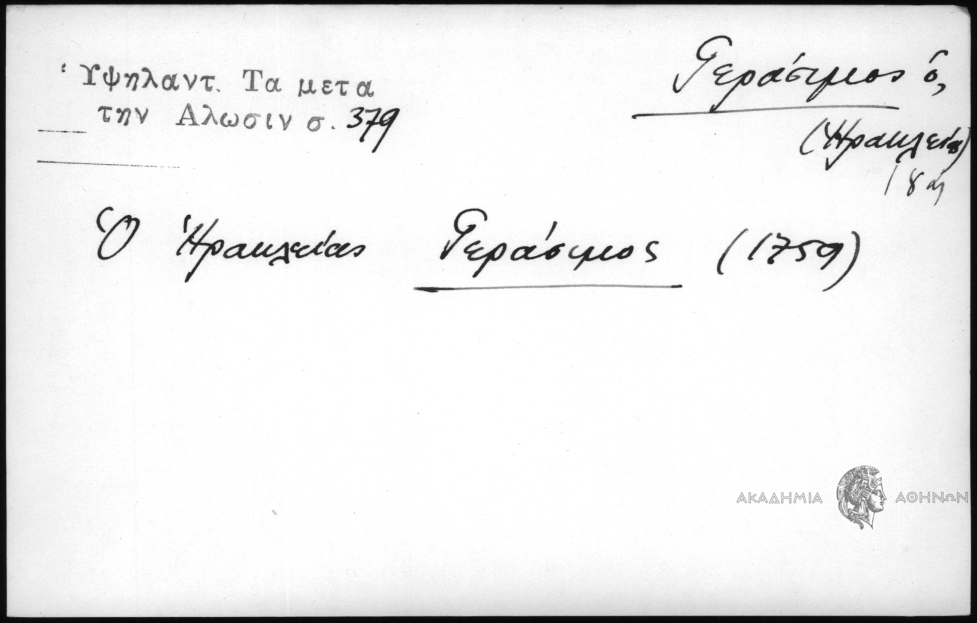 Ὑψηλαντ. Τα μετα
την Αλωσιν σ. 379
Γεράσιμος ὁ,
(Ἡρακλείας)
18 αἰ
Ὁ Ἡρακλείας Γεράσιμος (1759)
ΑΚΑΔΗΜΙΑ ΑΘΗΝΩΝ